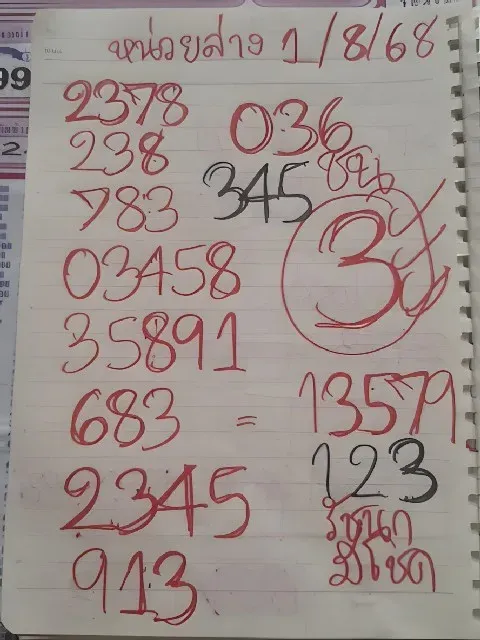 หน่วยล่าง 1/8/68
2378
036
238
ชน
345
783
3
03458
35891
683 = 13579
123
2345
รัชนก
มีโชค
913